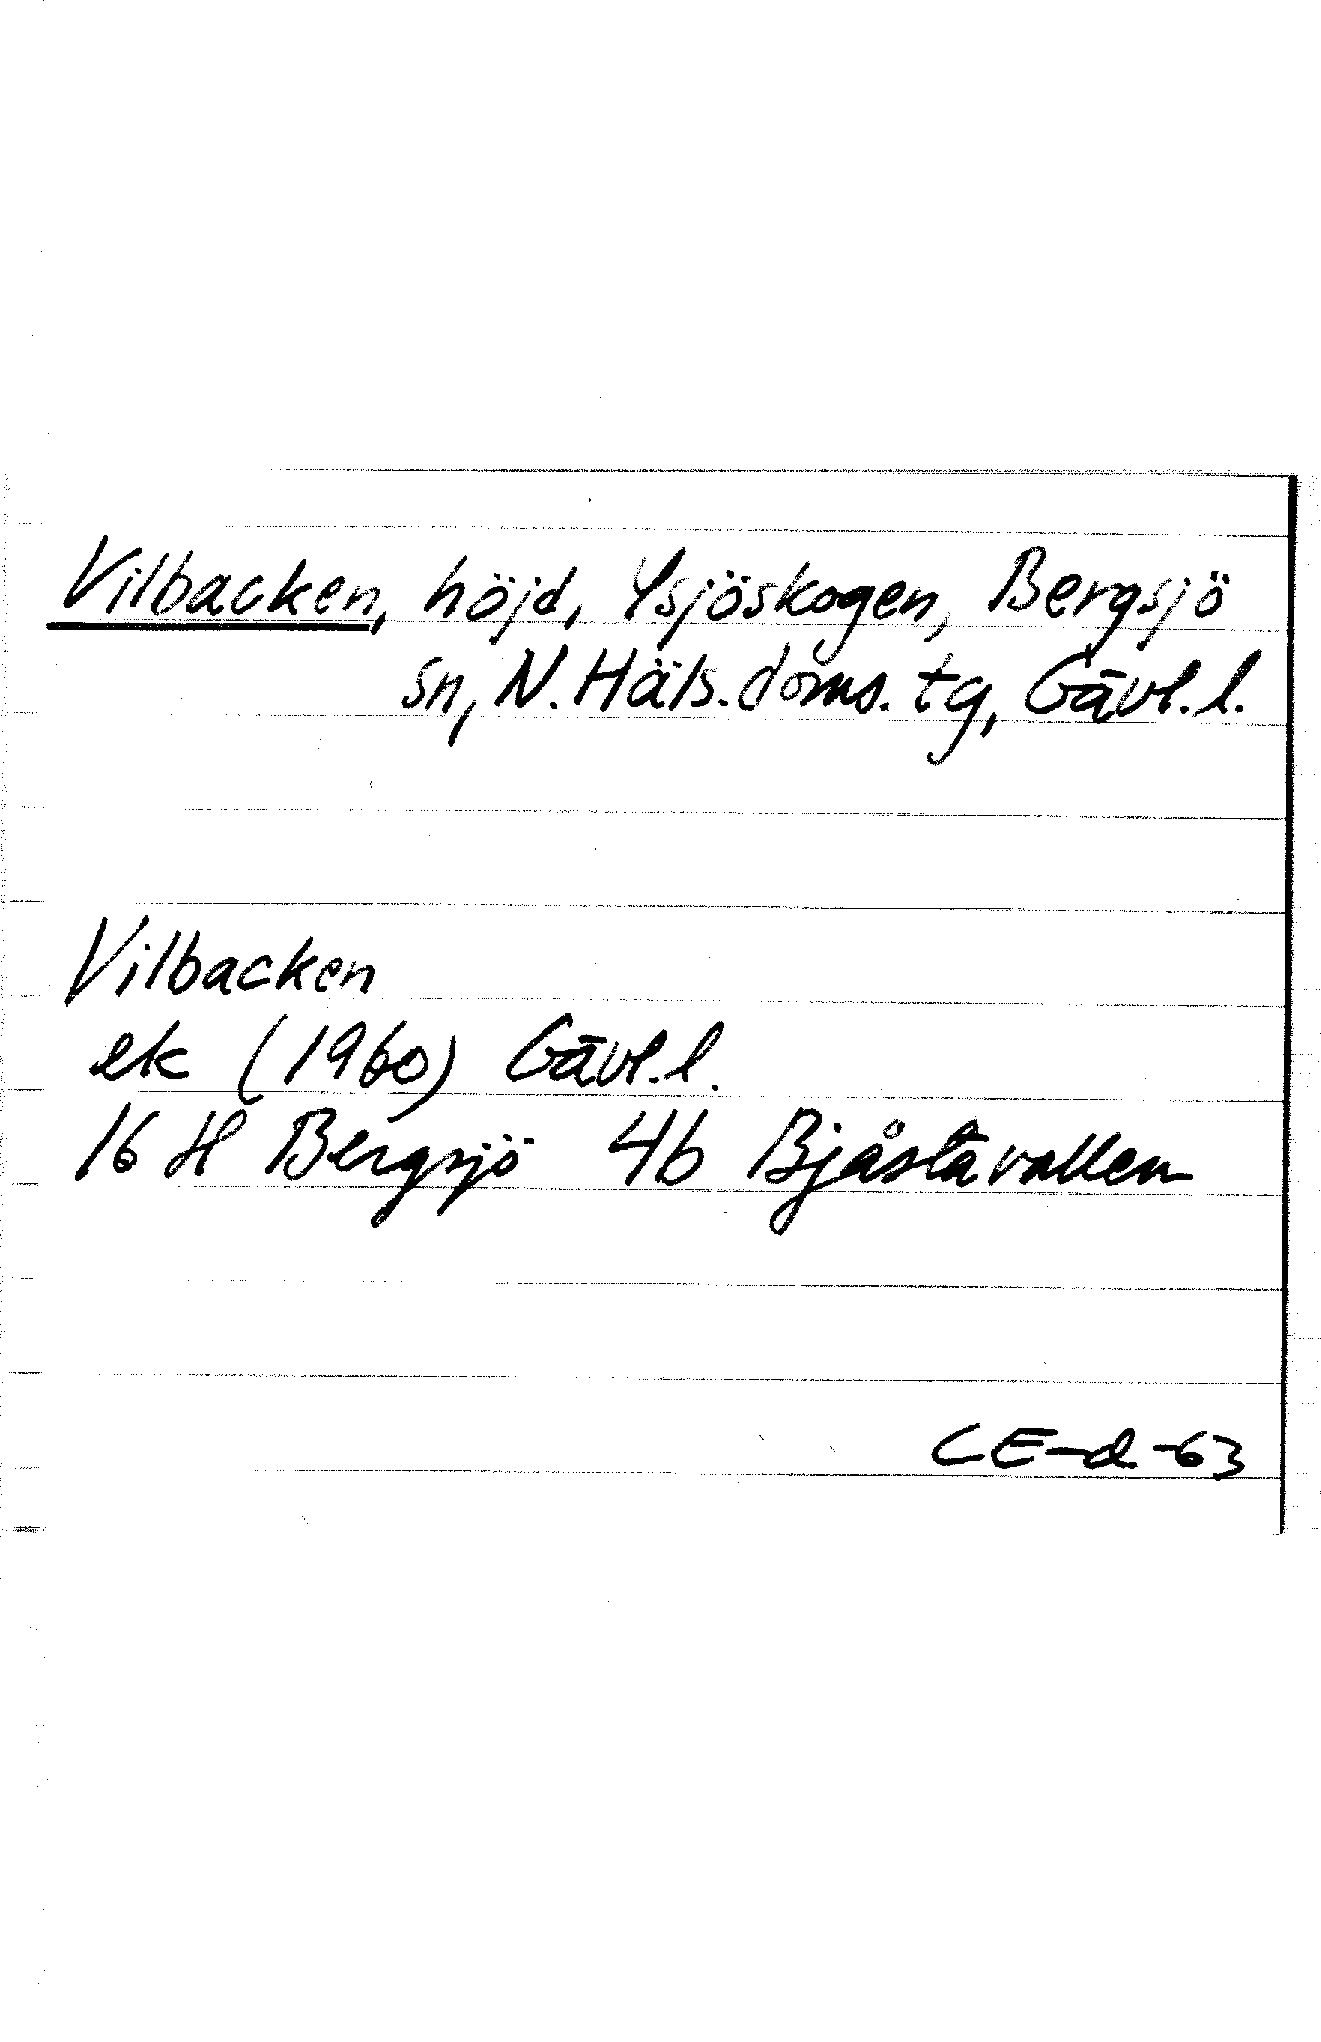 Vilbacken, höjd, Ysjöskogen, Bergsjö
sn, N. Häls. doms. tg, Gävl. l.
Vilbacken
ek (1960) Gävl. l.
16 H Bergsjö 4b Bjåstavallen
CE-d-63